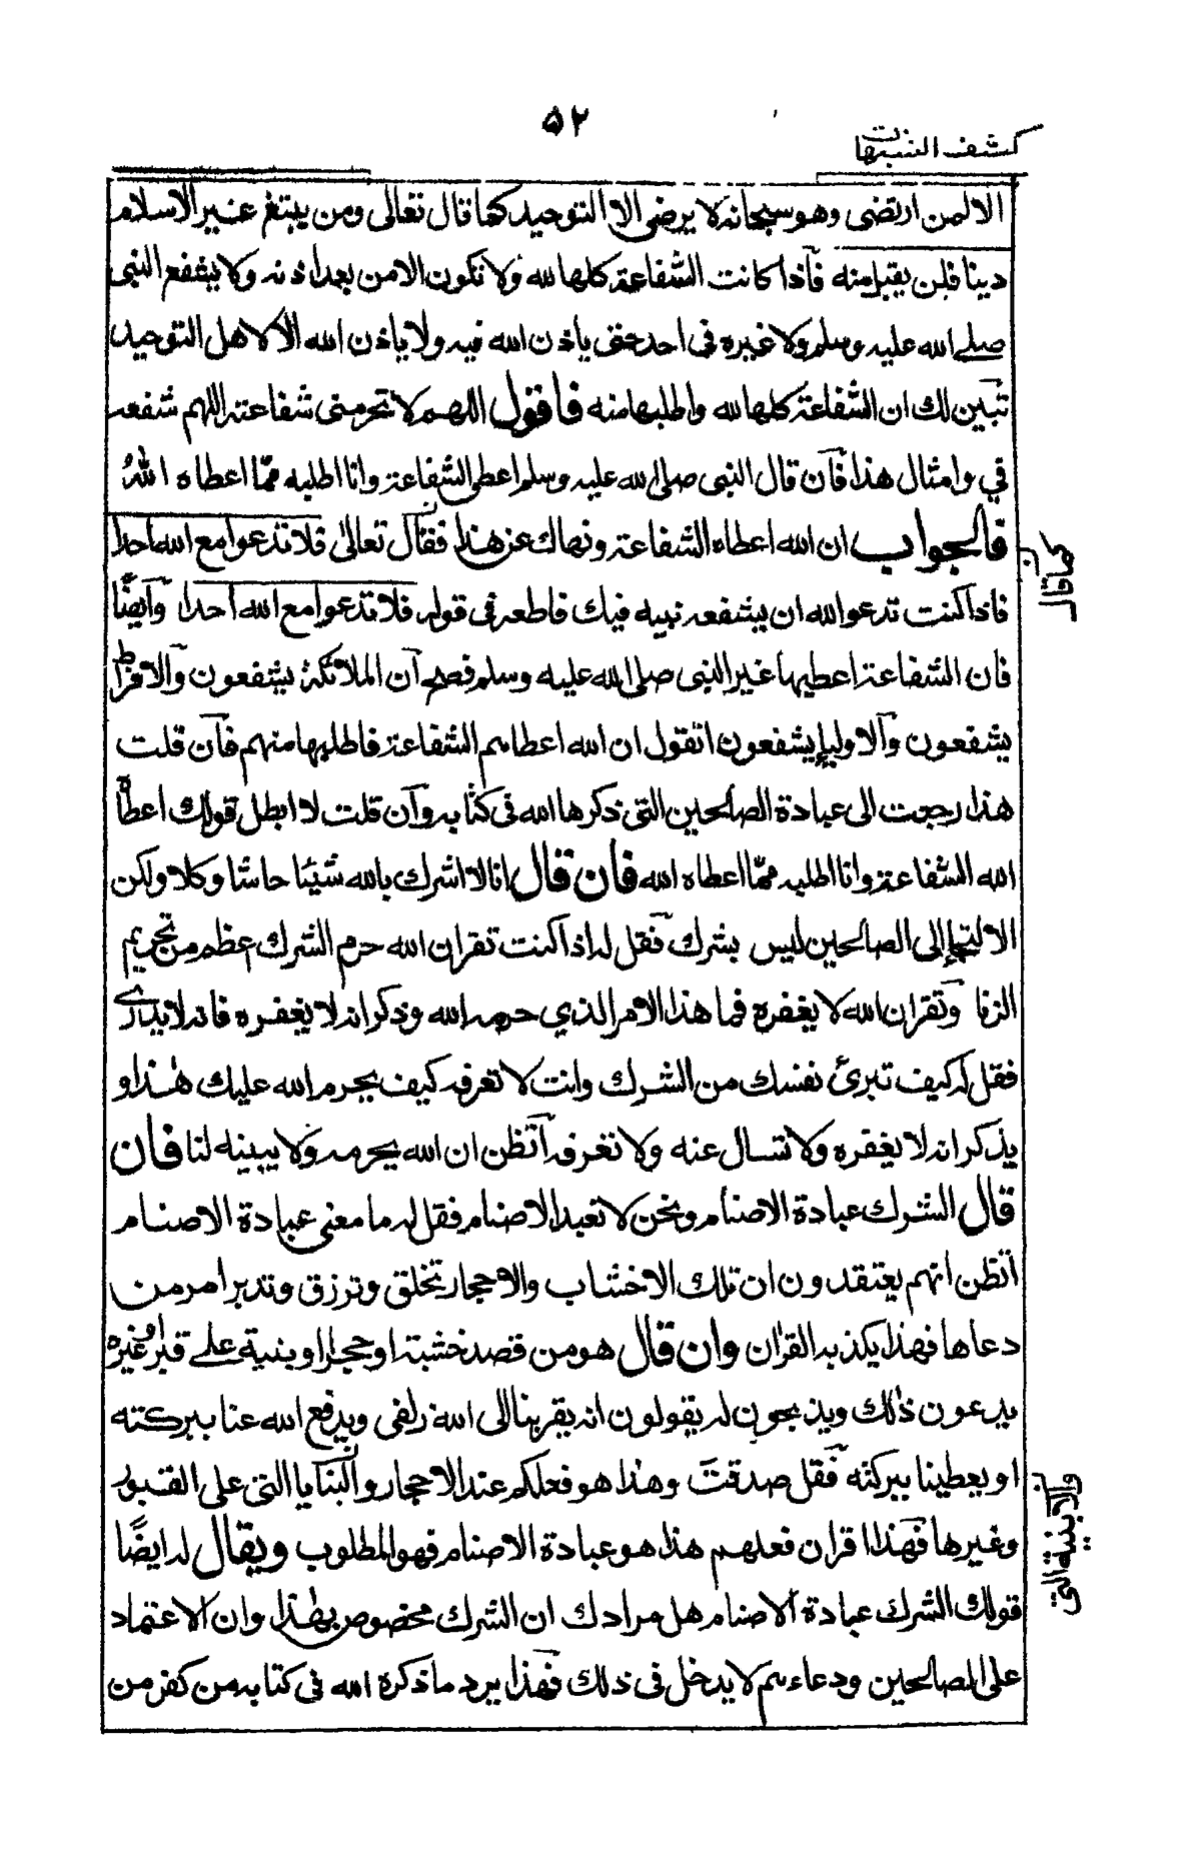 ۵۲
كشف الشبهات
الا لمن ارتضى وهو سبحانه لا يرضى الا التوحيد كما قال تعالى ومن يبتغ غير الاسلام
دينا فلن يقبل منه فآذا كانت الشفاعة كلها لله ولا تكون الا من بعد اذنه ولا يشفع النبي
صلى الله عليه وسلم ولا غيره في احد حتى ياذن الله فيه ولا ياذن الله الا لاهل التوحيد
تبين لك ان الشفاعة كلها لله واطلبها منه فاقول اللهم لا تحرمنى شفاعته اللهم شفعه
في وامثال هذا فآن قال النبي صلى الله عليه وسلم اعطى الشفاعة وانا اطلبه مما اعطاه اللهُ
فالجواب ان الله اعطاه الشفاعة ونهاك عن هذا فقال تعالى فلا تدعوا مع الله احدا
كما قال
فاذا كنت تدعو الله ان يشفعه نبيه فيك فاطعه في قوله فلا تدعوا مع الله احدا وآيضًا
فان الشفاعة اعطيها غير النبي صلى الله عليه وسلم فصح آن الملائكة يشفعون وآلافراط
يشفعون وآلاولياء يشفعون اتقول ان الله اعطاهم الشفاعة فاطلبها منهم فآن قلت
هذا رجعت الى عبادة الصالحين التي ذكرها الله في كتابه وآن قلت لا ابطل قولك اعطاه
الله الشفاعة وانا اطلبه مما اعطاه الله فان قال انا لا اشرك بالله شيئا حاشا وكلا ولكن
الالتجاء الى الصالحين ليس بشرك فقل له اذا كنت تقر ان الله حرم الشرك اعظم من تحريم
الزنا وتقر ان الله لا يغفره فما هذا الامر الذي حرمه الله وذكر انه لا يغفره فانه لا يدرى
فقل له كيف تبرئ نفسك من الشرك وانت لا تعرفه كيف يحرم الله عليك هذا و
يذكر انه لا يغفره ولا تسال عنه ولا تعرفه آتظن ان الله يحرمه ولا يبينه لنا فان
قال الشرك عبادة الاصنام ونحن لا نعبد الاصنام فقل له ما معنى عبادة الاصنام
اتظن انهم يعتقدون ان تلك الاخشاب والاحجار تخلق وترزق وتدبر امر من
دعاها فهذا يكذبه القران وان قال هو من قصد خشبة او حجرا او بنية على قبر او غيره
يدعون ذلك ويذبحون له يقولون انه يقربنا الى الله زلفى ويدفع الله عنا ببركته
او يعطينا ببركته فقل صدقت وهذا هو فعلكم عند الاحجار والبنايا التي على القبور
والابنية التي
وغيرها فهذا اقر ان فعلهم هذا هو عبادة الاصنام فهو المطلوب ويقال له ايضًا
قولك الشرك عبادة الاصنام هل مرادك ان الشرك مخصوص بهذا وان الاعتماد
على الصالحين ودعاءهم لا يدخل في ذلك فهذا يرد ما ذكره الله في كتابه من كفر من